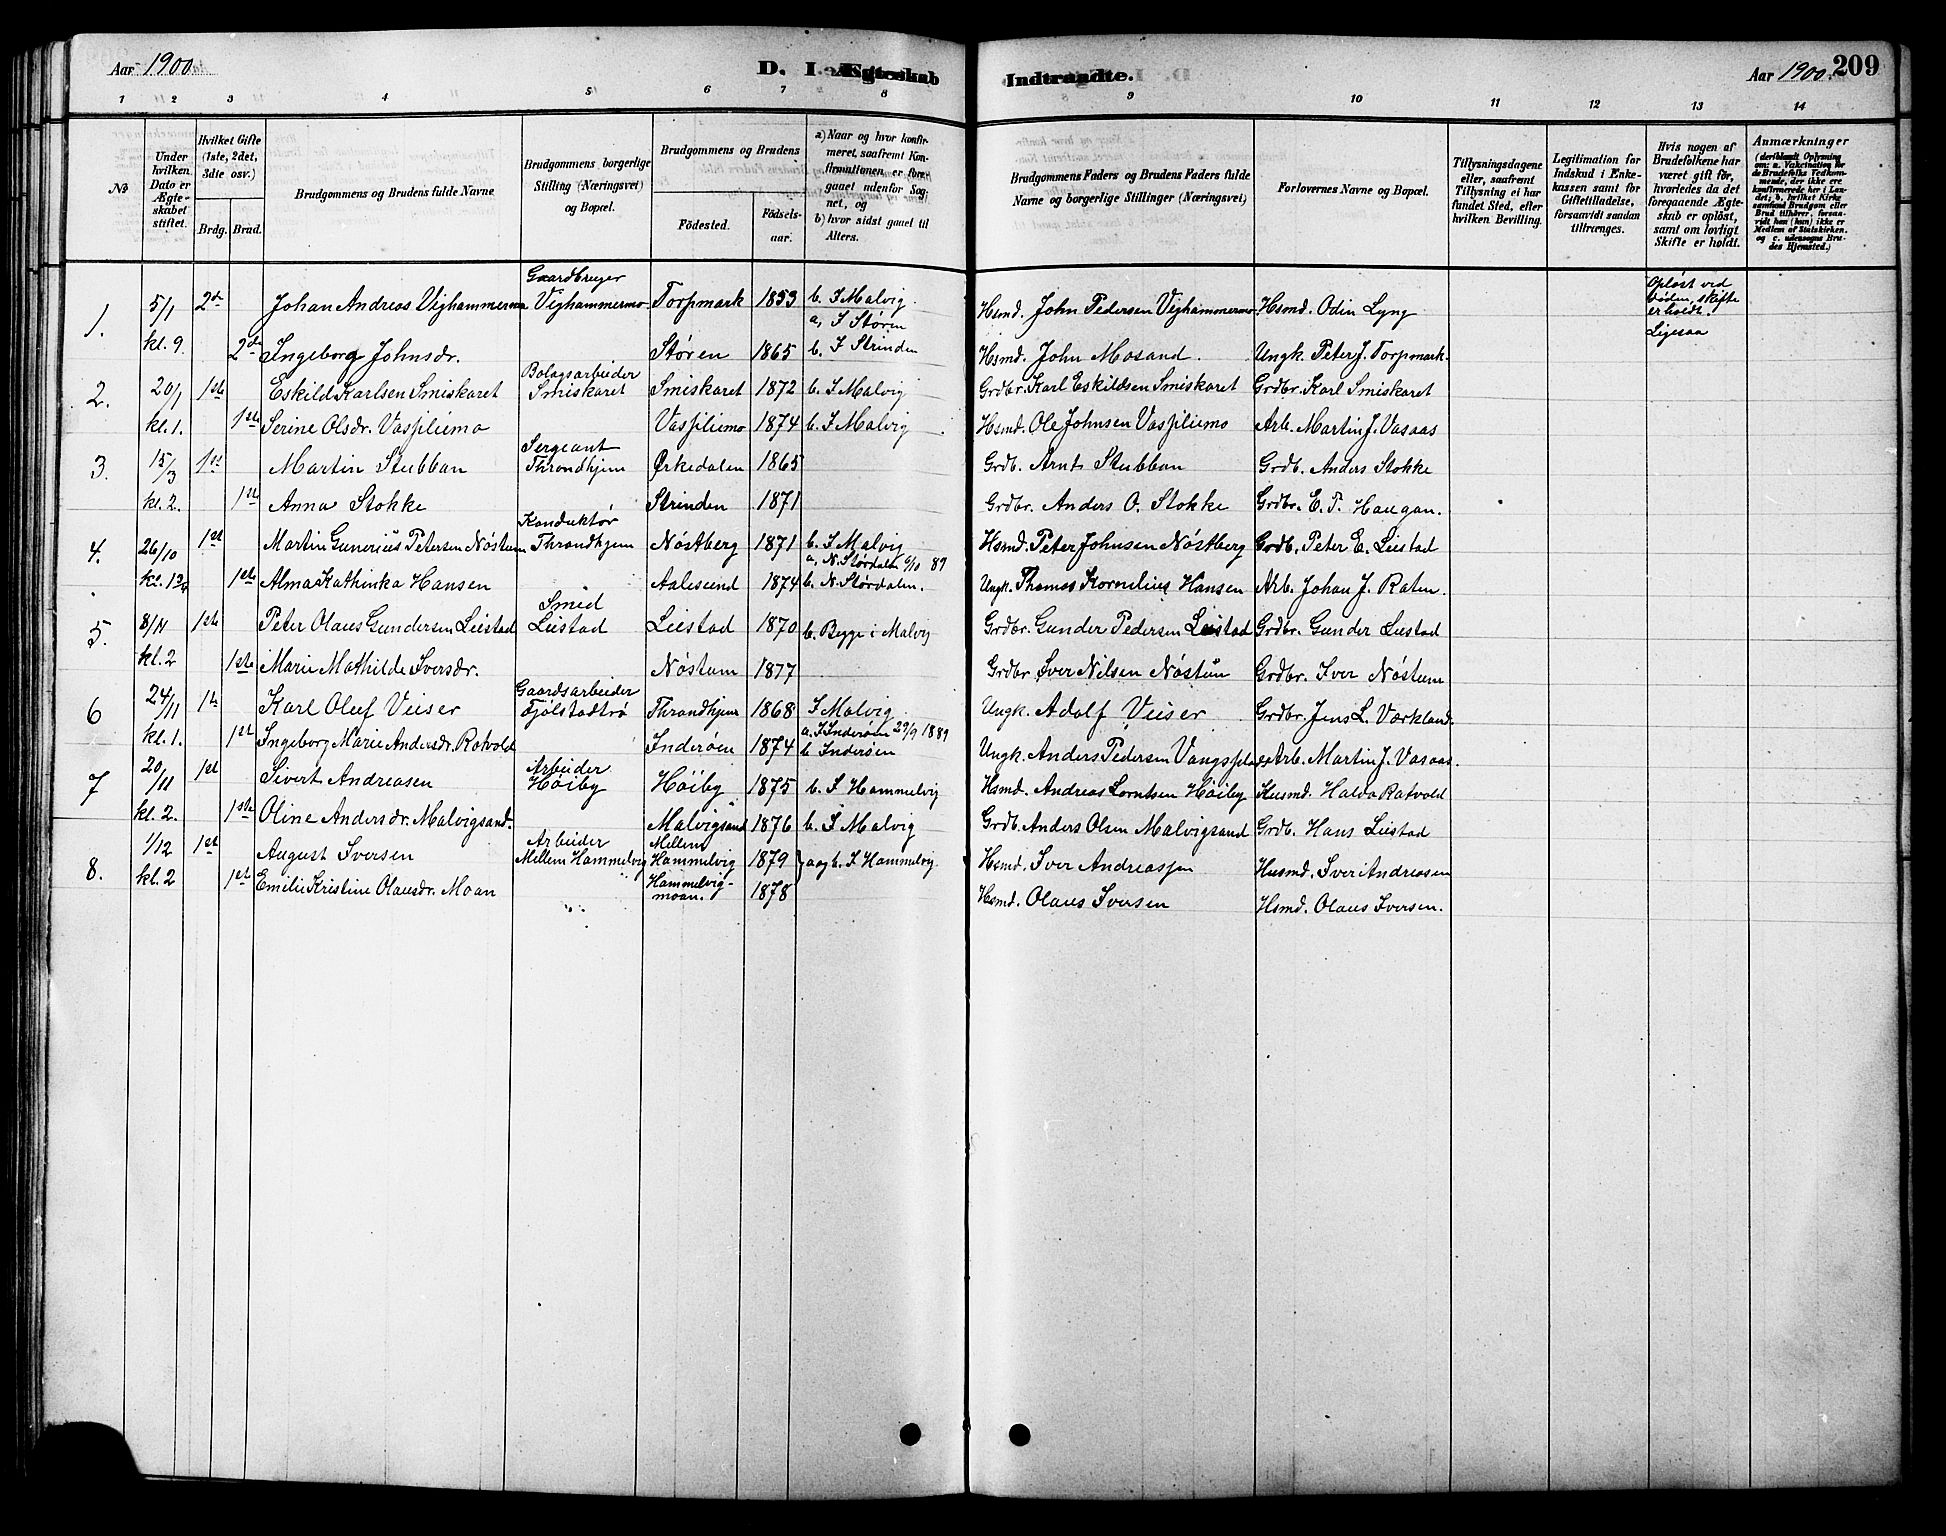 Aar 1900
D. I Ægteskab
Indtraadte.
Aar 1900. 209
1 2 3 4 5 6 7 8 9 10 11 12 13 14
№
Under hvilken Dato er Ægteskabet stiftet.
Hvilket Gifte (1ste, 2det, 3die osv.)
Brdg. Brud.
Brudgommens og Brudens fulde Navne
Brudgommens borgerlige Stilling (Næringsvei) og Bopæl.
Brudgommens og Brudens
Födested.
Födselsaar.
a) Naar og hvor konfirmeret, saafremt Konfirmationen er foregaaet udenfor Sognet, og
b) hvor sidst gaaet til Alters.
Brudgommens Faders og Brudens Faders fulde Navne og borgerlige Stillinger (Næringsvei)
Forlovernes Navne og Bopæl.
Tillysningsdagene eller, saafremt Tillysning ei har fundet Sted, efter hvilken Bevilling.
Legitimation for Indskud i Enkekassen samt for Giftetilladelse, forsaavidt saadan tiltrænges.
Hvis nogen af Brudefolkene har været gift før, hvorledes da det foregaaende Ægteskab er opløst, samt om lovligt Skifte er holdt.
Anmærkninger
(deriblandt Oplysning om: a. Vakcination for de Brudefolks Vedkommende, der ikke ere konfirmerede her i Landet; b. hvilket Kirkesamfund Brudgom eller Brud tilhører, forsaavidt han (hun) ikke er Medlem af Statskirken, og c. udensogns Brudes Hjemsted.)
1. 5/1 2de Johan Andreas Vighammermo Gaardbruger Vighammermo Torpmark 1853 b. I Malvig. Hsmd. John Pedersen Vighammermo Hsmd. Odin Lyng Opløst ved Døden, skifte er holdt.
kl. 9. 2de Ingeborg Johnsdr. Støren 1865 a, I Støren b. I Strinden Hsmd. John Mosand. Ungk. Peter J. Torpmark. Ligesaa
2. 20/1 1ste Eskild Karlsen Smiskaret Bolagsarbeider Smiskaret Smiskaret 1872 b. I Malvig Grdbr. Karl Eskildsen Smiskaret Grdbr. Karl Smiskaret
kl. 1. 1ste Serine Olsdr. Vasfliemo Vasfliemo 1874 b. I Malvig Hsmd. Ole Johnsen Vasfliemo Arb. Martin J. Vasaas
3. 15/3 1ste Martin Stubban Sergeant Throndhjem Ørkedalen 1865 Grdb. Arnt Stubban Grdb. Anders Stokke
kl. 2. 1ste Anna Stokke Strinden 1871 Grdbr. Anders O. Stokke Grdbr. E. T. Haugan.
4. 26/10 1ste Martin Gunerius Petersen Nöstum Konduktør Throndhjem Nöstberg 1871 b. I Malvig Hsmd. Peter Johnsen Nöstberg Grdb. Peter E. Leistad
1ste Alma Kathinka Hansen Aalesund 1874 a, N. Stördalen 6/10 89 b. N. Stördalen. Ungk. Thomas Kornelius Hansen Arb. Johan J. Raten.
5. 8/11 1ste Peter Olaus Gundersen Leistad Smed Leistad Leistad 1870 b. Begge i Malvig Grdbr. Gunder Pedersen Leistad Grdbr. Gunder Leistad
kl. 2 1ste Marie Mathilde Iversdr. Nöstum 1877 Grdbr Iver Nilsen Nöstun Grdbr. Iver Nöstum
6 24/11 1ste Karl Oluf Veiser Gaardsarbeider Fjölstadtrö Throndhjem 1868 I Malvig Ungk. Adolf Veiser Grdbr. Jens L. Værkland.
kl. 1. 1ste Ingeborg Marie Andersdr. Rotvold Inderöen 1874 a. I Inderöen 29/9 1889 b Inderöen Ungk. Anders Pedersen Arb. Martin J. Vasaas.
7 20/11 1ste Sivert Andreasen Arbeider Höiby Höiby 1875 b. I Hommelvig Hsmd. Andreas Lorntsen Höiby Husmd. Haldo Ratvold
kl. 2. 1ste Oline Andersdr. Malvigsand. Malvigsand 1876 b. I Malvig Grdb. Anders Olsen Malvigsand Grdb. Hans Leistad
8. 1/12 1ste August Iversen Arbeider Mellem Hammelvig Mellem Hammelvig 1879 } a og b. I Hammelvig. Hsmd. Iver Andreassen Husmd. Iver Andreasen
kl. 2 1ste Emilie Kristine Olausdr. Moan Hammelvigmoan. 1878 Hsmd. Olaus Iversen Hsmd. Olaus Iversen.